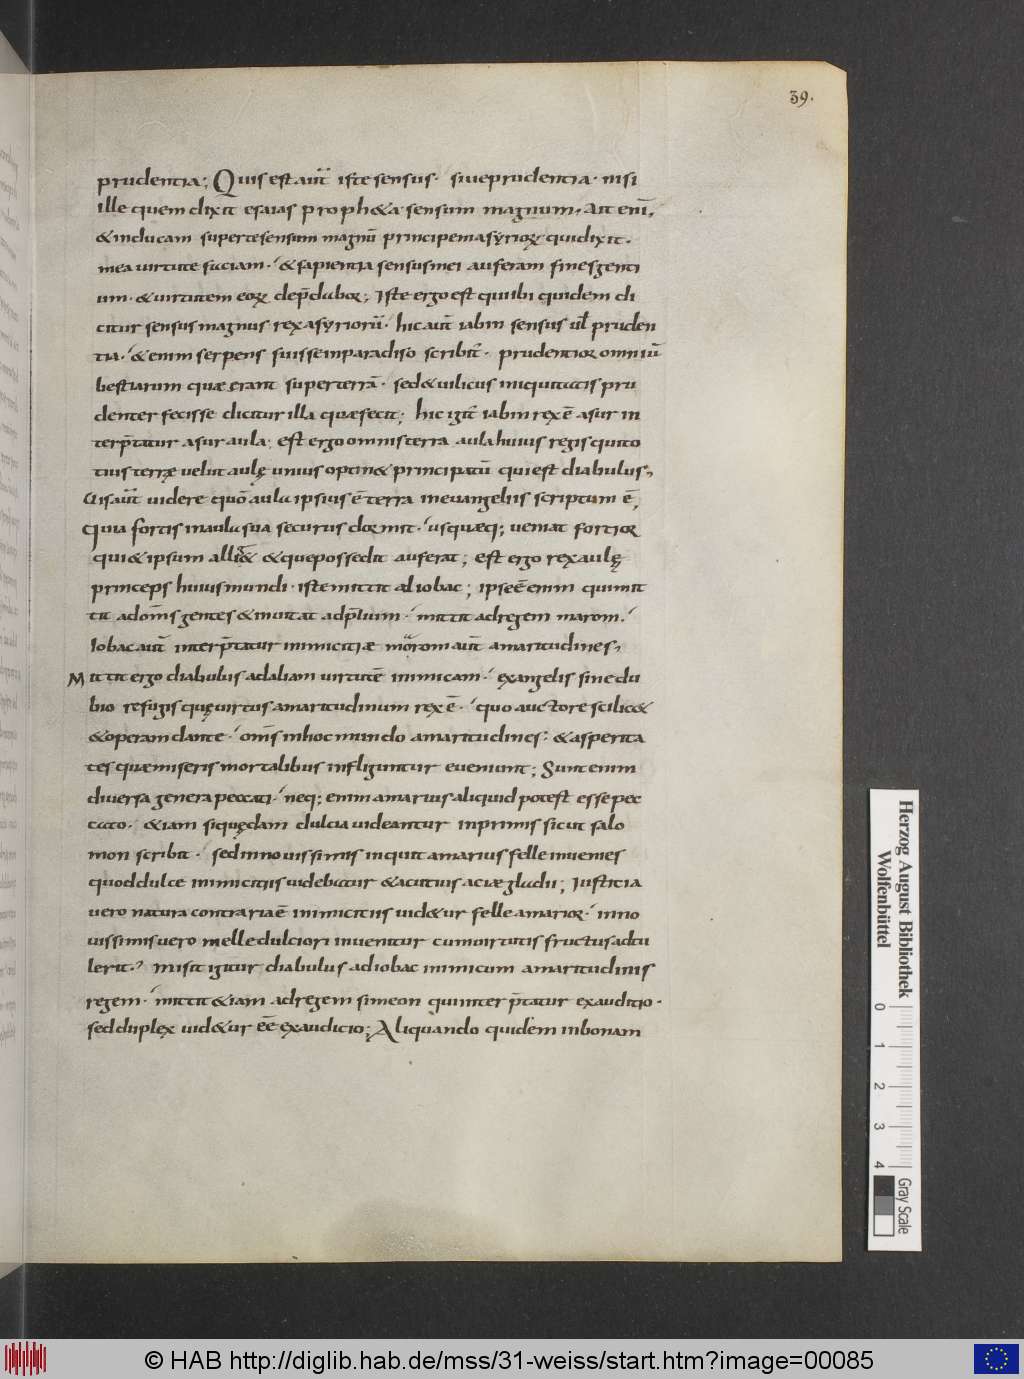 39.
prudentia; Quis est aut̄ iste sensus· siue prudentia· nisi
ille quem dixit esaias proph&a sensum magnum, Ait eni̅,
& inducam super te sensum magnū principem asyrioꝝ qui dixit.
mea uirtute faciam· & sapientia sensus mei auferam fines genti
um· & uirtutem eoꝝ dep̄dabor; Iste ergo est qui ibi quidem di
citur sensus magnus rex asyriorū· hic aut̄ iabin sensus ul̄ pruden
tia· & enim serpens fuisse in paradiso scribit̄· prudentior omniū
bestiarum quæ erant super terrā· sed & uilicus iniquitatis pru
denter fecisse dicitur illa quæ fecit; hic igit̄ iabin rex ē asur in
terp̄tatur asur aula; est ergo omnis terra aula huius regis qui to
tius terræ uelut aulę unius optin& principatū qui est diabulus,
Uis aut̄ uidere quō aula ipsius ē terra in euangeliis scriptum ē,
Quia fortis in aula sua securus dormit· usquæq; ueniat fortior
qui & ipsum allig& & que possedit auferat; est ergo rex aulę
princeps huius mundi· iste mittit ad iobac; ipse ē enim qui mit
tit ad om̄s gentes & inuitat ad p̄lium· mittit ad regem marom·
Iobac aut̄ interp̄tatur inimicitiæ marom aut̄ amaritudines,
Mittit ergo diabulus ad aliam uirtutē inimicam· ex angelis sine du
bio refugis quę uirtus amaritudinum rex ē· quo auctore scilic&
& operam dante· om̄s in hoc mundo amaritudines· & asperita
tes quæ miseris mortalibus infliguntur eueniunt; Sunt enim
diuersa genera peccati· neq; enim amarius aliquid potest esse pec
cato· & iam si quędam dulcia uideantur in primis sicut salo
mon scribit· sed in nouissimis inquit amarius felle inuenies
quod dulce inimicitiis uidebatur & acutius aciæ gladii; Iustitia
uero natura contraria ē inimicitiis uid&ur felle amarior· in no
uissimis uero melle dulciori inuenitur cum uirtutis fructus adtu
lerit· Misit igitur diabulus ad iobac inimicum amaritudinis
regem· mittit & iam ad regem simeon qui interp̄tatur exauditio·
sed duplex uid&ur eē exauditio; Aliquando quidem in bonam
Herzog August Bibliothek
Wolfenbüttel
0 1 2 3 4
Gray Scale
© HAB http://diglib.hab.de/mss/31-weiss/start.htm?image=00085